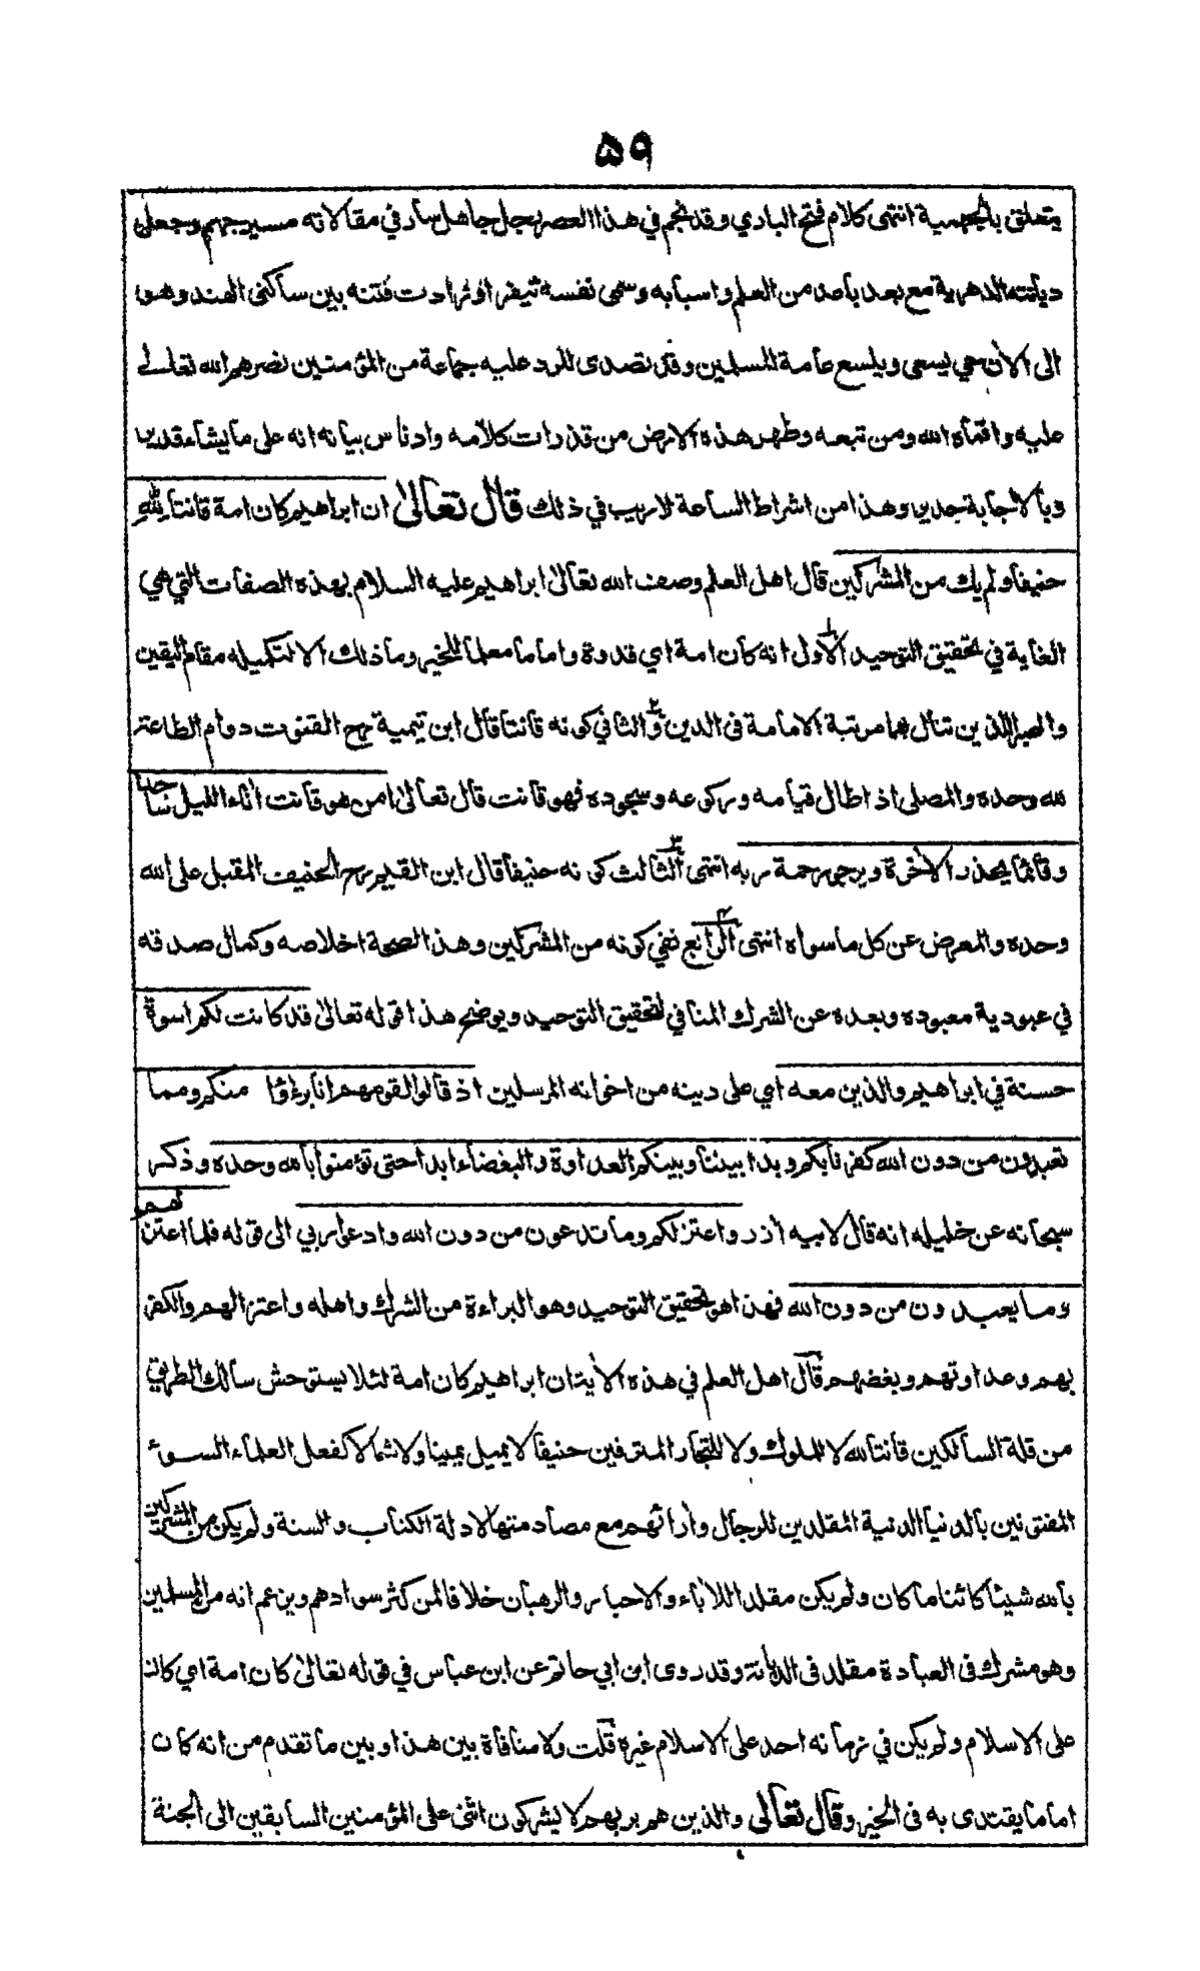 ۵۹
يتعلق بالجهمية انتهى كلام فتح الباري وقد نجم في هذا العصر رجل جاهل سار في مقالاته مسير جهم وجعل
ديانته الدهرية مع بعد باعد من العلم واسبابه وسمى نفسه نيفر اوثرادت فتنه بين ساكنى الهند وهو
الى الان حي يسعى ويلسع عامة المسلمين وقد تصدى للرد عليه جماعة من المؤمنين نصرهم الله تعالى
عليه واقمأه الله ومن تبعه وطهر هذه الارض من قذرات كلامه وادناس بيانه انه على ما يشاء قدير
وبالاجابة جدير وهذا من اشراط الساعة لا ريب في ذلك قال تعالى ان ابراهيم كان امة قانتا لله
حنيفا ولم يك من المشركين قال اهل العلم وصف الله تعالى ابراهيم عليه السلام بهذه الصفات التي هي
الغاية في تحقيق التوحيد الاول انه كان امة اي قدوة واماما معلما للخير وما ذلك الا لتكميله مقام اليقين
والصبر اللذين تنال بهما مرتبة الامامة فى الدين و الثاني كونه قانتا قال ابن تيمية رح القنوت دوام الطاعة
لله وحده والمصلى اذ اطال قيامه وركوعه وسجوده فهو قانت قال تعالى امن هو قانت اناء الليل ساجدا
وقائما يحذر الاخرة ويرجو رحمة ربه انتهى الثالث كونه حنيفا قال ابن القيم رح الحنيف المقبل على الله
وحده والمعرض عن كل ما سواه انتهى الرابع نفي كونه من المشركين وهذا لصحة اخلاصه وكمال صدقه
في عبودية معبوده وبعده عن الشرك المنافي لتحقيق التوحيد ويوضح هذا قوله تعالى قد كانت لكم اسوة
حسنة في ابراهيم والذين معه اي على دينه من اخوانه المرسلين اذ قالوا لقومهم انا برءؤا منكم ومما
تعبدون من دون الله كفرنا بكم وبدا بيننا وبينكم العداوة والبغضاء ابدا حتى تؤمنوا بالله وحده وذكر
سبحانه عن خليله انه قال لابيه آزر واعتزلكم وما تدعون من دون الله وادعوا ربي الى قوله فلما اعتزلهم
وما يعبدون من دون الله فهذا هو تحقيق التوحيد وهو البراءة من الشرك واهله واعتزالهم والكفر
بهم وعداوتهم وبغضهم قال اهل العلم في هذه الاية ان ابراهيم كان امة لئلا يستوحش سالك الطريق
من قلة السالكين قانتا لله لا للملوك ولا للتجار المترفين حنيفا لا يميل يمينا ولا شمالا كفعل العلماء السوء
المفتونين بالدنيا الدنية المقلدين للرجال وآرائهم مع مصادمتها لادلة الكتاب والسنة ولم يكن من المشركين
بالله شيئا كائنا ما كان ولم يكن مقلدا للاباء والاحبار والرهبان خلافا لمن كثر سوادهم ويزعم انه من المسلمين
وهو مشرك فى العبادة مقلد فى الديانة وقد روى ابن ابي حاتم عن ابن عباس في قوله تعالى كان امة اي كان
على الاسلام ولم يكن في زمانه احد على الاسلام غيره قلت ولا منافاة بين هذا وبين ما تقدم من انه كان
اماما يقتدى به فى الخير وقال تعالى والذين هم بربهم لا يشركون اثنى على المؤمنين السابقين الى الجنة